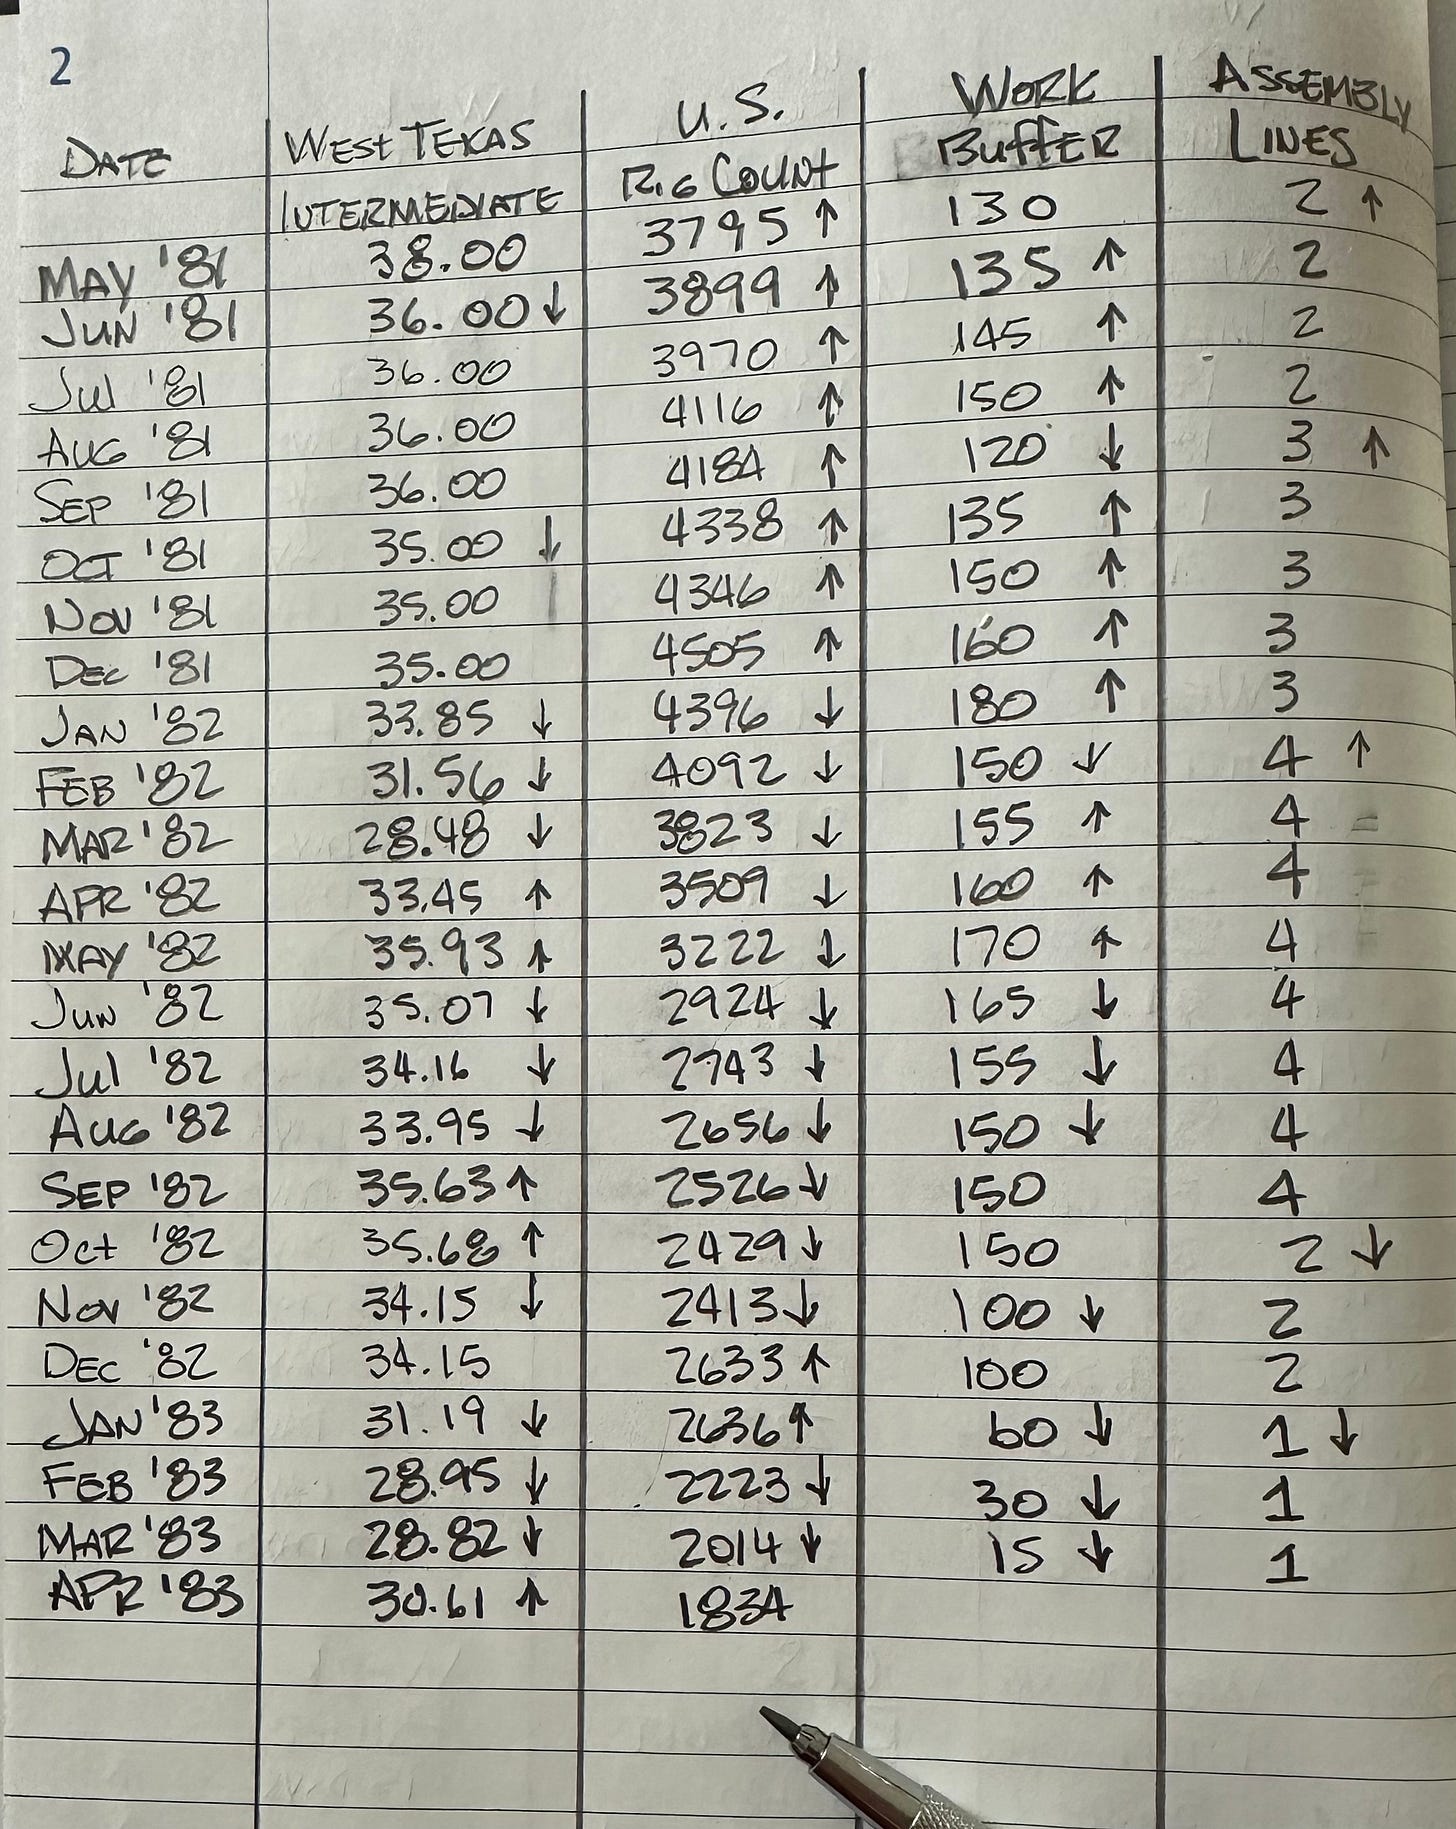 2
DATE WEST TEXAS U.S. WORK ASSEMBLY
INTERMEDIATE RIG COUNT BUFFER LINES
MAY '81 38.00 3795 ↑ 130 2 ↑
JUN '81 36.00 ↓ 3899 ↑ 135 ↑ 2
JUL '81 36.00 3970 ↑ 145 ↑ 2
AUG '81 36.00 4116 ↑ 150 ↑ 2
SEP '81 36.00 4184 ↑ 120 ↓ 3 ↑
OCT '81 35.00 ↓ 4338 ↑ 135 ↑ 3
NOV '81 35.00 4346 ↑ 150 ↑ 3
DEC '81 35.00 4505 ↑ 160 ↑ 3
JAN '82 33.85 ↓ 4396 ↓ 180 ↑ 3
FEB '82 31.56 ↓ 4092 ↓ 150 ↓ 4 ↑
MAR '82 28.48 ↓ 3823 ↓ 155 ↑ 4
APR '82 33.45 ↑ 3509 ↓ 160 ↑ 4
MAY '82 35.93 ↑ 3222 ↓ 170 ↑ 4
JUN '82 35.07 ↓ 2924 ↓ 165 ↓ 4
JUL '82 34.16 ↓ 2743 ↓ 155 ↓ 4
AUG '82 33.95 ↓ 2656 ↓ 150 ↓ 4
SEP '82 35.63 ↑ 2526 ↓ 150 4
Oct '82 35.68 ↑ 2429 ↓ 150 2 ↓
NOV '82 34.15 ↓ 2413 ↓ 100 ↓ 2
DEC '82 34.15 2633 ↑ 100 2
JAN '83 31.19 ↓ 2636 ↑ 60 ↓ 1 ↓
FEB '83 28.95 ↓ 2223 ↓ 30 ↓ 1
MAR '83 28.82 ↓ 2014 ↓ 15 ↓ 1
APR '83 30.61 ↑ 1834